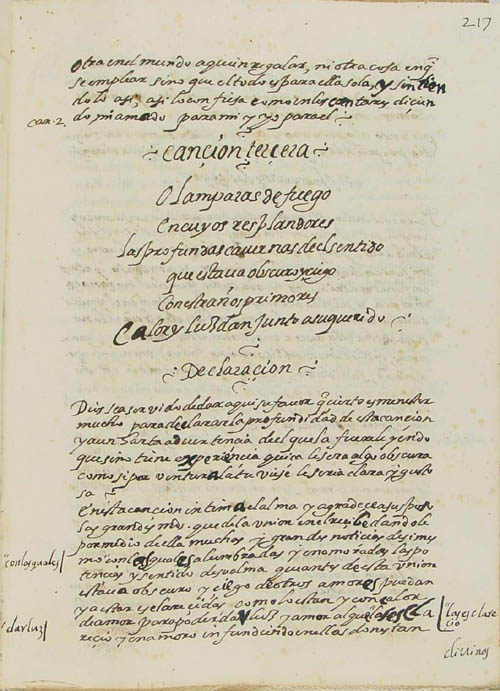 217
otra en el mundo a quien regalar, ni otra cosa en q̃
se emplear sino que el todo es para ella sola, y sintien
dolo asi, asi lo confiesa como en los cantares dicien
can. 2.
do mi amado para mi y yo para el
cançion terçera
O lamparas de fuego
En cuyos resplandores
las profundas cauernas del sentido
que estaua obscuro y çiego
Con estraños primores
Calor y luz dan junto a su querido
Declaraçion
Dios sea seruido de dar aqui su fauor q̃ cierto es menester
mucho para declarar la profundidad de esta cancion
y aun harta aduertencia del que la fuere leyendo
que si no tiene experiencia quiça le sera algo obscura
como si por uentura la tuuiese le seria clara y gusto
sa
En esta cancion intima el alma y agradece a su espo
so las grandes mds. que de la union en el recibe dandole
por medio de ella muchas y grandes noticias de si mis
mo con las quales alumbradas y enamoradas las po
"con las quales
tencias y sentido de su alma que antes de esta union
estaua obscuro y ciego de otros amores puedan
ya estar esclarecidas como lo estan y con calor
de amor para poder dar luz y amor al que las escla
"dar luz
"las escla re
cio
recio y enamoro infundiendo en ellas dones tan
diuinos